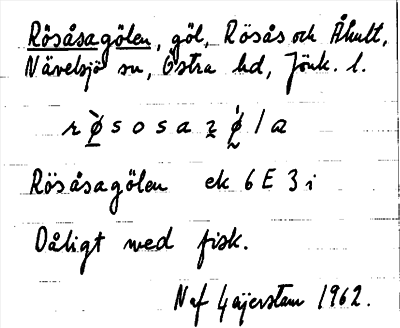 Rösåsagölen, göl, Rösås och Åhult,
Nävelsjö sn, Östra hd, Jönk. l.
r ø̀ s o s a z ǿ l a
Rösåsagölen ek 6 E 3 i
Dåligt med fisk.
Naf Gajerstam 1962.